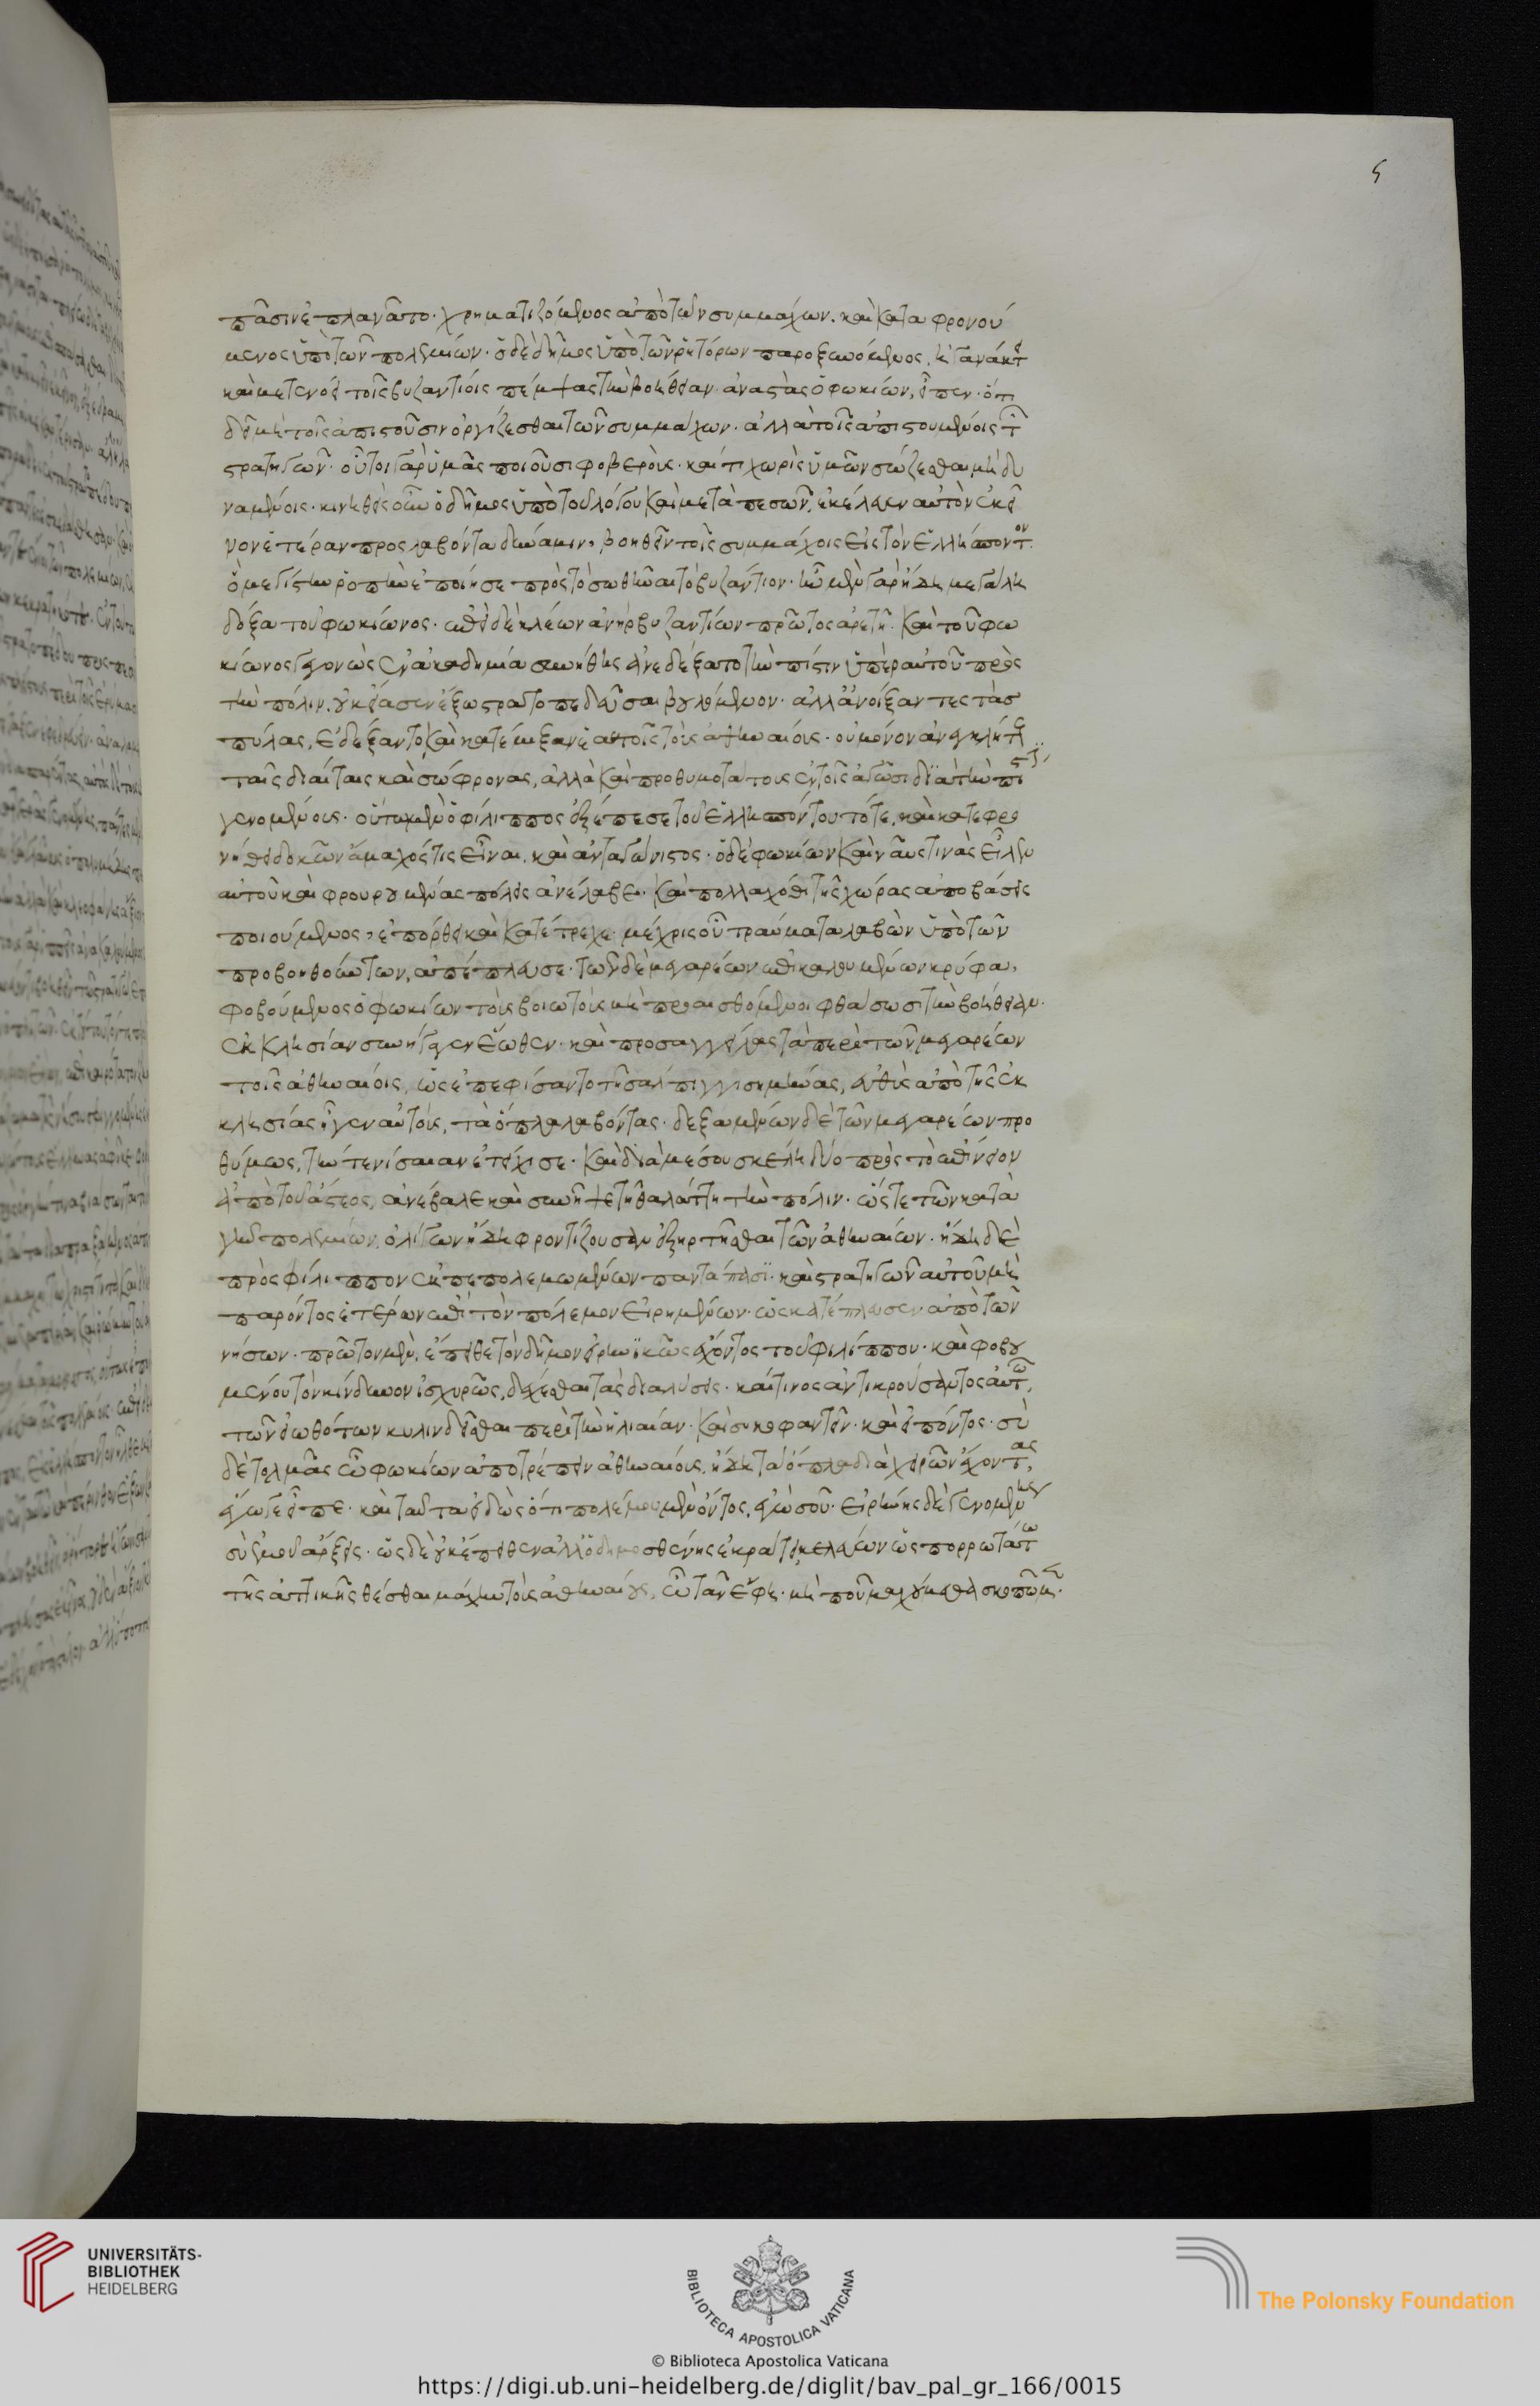 5
πᾶσιν ἐπλανᾶτο· χρηματιζόμενος ἀπὸ τῶν συμμάχων. καὶ καταφρονού
μενος ὑπὸ τῶν πολεμίων· ὁ δὲ δῆμος ὑπὸ τῶν ῥητόρων παροξυνόμενος, ἠγανάκτει
καὶ μετενόει τοῖς βυζαντίοις πέμψας τὴν βοήθειαν· ἀναστὰς ὁ φωκίων, εἶπεν· ὅτι
δεῖ μὴ τοῖς ἀπιστοῦσιν ὀργίζεσθαι τῶν συμμάχων· ἀλλὰ τοῖς ἀπιστουμένοις τῶν
στρατηγῶν· οὗτοι γὰρ ὑμᾶς ποιοῦσι φοβεροὺς· καί τι χωρὶς ὑμῶν σώζεσθαι μὴ δυ
ναμένοις· κινηθεὶς οὖν ὁ δῆμος ὑπὸ τοῦ λόγου καὶ μεταπεσὼν, ἐκέλευεν αὐτὸν ἐκεῖ
νον ἑτέραν προσλαβόντα δύναμιν, βοηθεῖν τοῖς συμμάχοις εἰς τὸν ἑλλήσποντον.
ὃ μεγίστην ῥοπὴν ἐποίησε πρὸς τὸ σωθῆναι τὸ βυζάντιον· ἦν μὲν γὰρ ἤδη μεγάλη
δόξα τοῦ φωκίωνος· ἐπεὶ δὲ κλέων ἀνὴρ βυζαντίων πρῶτος ἀρετῇ· καὶ τοῦ φω
κίωνος γεγονὼς ἐν ἀκαδημία συνήθης ἀνεδέξατο τὴν πίστιν ὑπὲρ αὐτοῦ πρὸς
τὴν πόλιν, οὐκ εἴασεν ἔξω στρατοπεδεῦσαι βουλόμενον· ἀλλ' ἀνοίξαντες τὰσ
πύλας, ἐδέξαντο καὶ κατέμιξαν ἑαυτοῖς τοὺς ἀθηναίοις· οὐ μόνον ἀνεγκλήτους
ταῖς διαίταις καὶ σώφρονας, ἀλλὰ καὶ προθυμοτάτους ἐν τοῖς ἀγῶσι διὰ τὴν πίστιν
γενομένους· οὕτω μὲν ὁ φίλιππος ἐξέπεσε τοῦ ἑλλησπόντου τότε, καὶ κατεφρο
νήθη δοκῶν ἄμαχός τις εἶναι, καὶ ἀνταγώνιστος· ὁ δὲ φωκίων καὶ ναῦς τινὰς εἷλεν
αὐτοῦ καὶ φρουρουμένας πόλεις ἀνέλαβε. καὶ πολλαχόθι τῆς χώρας ἀποβάσεις
ποιούμενος, ἐπόρθει καὶ κατέτρεχε μέχρις οὗ τραύματα λαβὼν ὑπὸ τῶν
προσβοηθούντων, ἀπέπλευσε· τῶν δὲ μεγαρέων ἐπικαλουμένων κρύφα,
φοβούμενος ὁ φωκίων τοὺς βοιωτοὺς μὴ προαισθόμενοι φθάσωσι τὴν βοήθειαν.
ἐκκλησίαν συνήγαγεν ἕωθεν· καὶ προσαγγείλας τὰ περὶ τῶν μεγαρέων
τοῖς ἀθηναίοις, ὡς ἐπεψηφίσαντο τῇ σάλπιγγι σημήνας, εὐθὺς ἀπὸ τῆς ἐκ
κλησίας ἦγεν αὐτοὺς, τὰ ὅπλα λαβόντας· δεξαμένων δὲ τῶν μεγαρέων προ
θύμως, τήν τε νίσαιαν ἐτείχισε· καὶ διὰ μέσου σκέλη δύο πρὸς τὸ ἐπίνειον
ἀπὸ τοῦ ἄστεος, ἀνέβαλε καὶ συνῆψε τῇ θαλάττῃ τὴν πόλιν· ὥστε τῶν κατὰ
γῆν πολεμίων, ὀλίγων ἤδη φροντίζουσαν ἐξηρτῆσθαι τῶν ἀθηναίων· ἤδη δὲ
πρὸς φίλιππον ἐκπεπολεμωμένων παντάπασι· καὶ στρατηγῶν αὐτοῦ μὴ
παρόντος ἑτέρων ἐπὶ τὸν πόλεμον εἰρημένων· ὡς κατέπλευσεν ἀπὸ τῶν
νήσων· πρῶτον μὲν, ἔπειθε τὸν δῆμον εἰρηνικῶς ἔχοντος τοῦ φιλίππου· καὶ φοβου
μένου τὸν κίνδυνον ἰσχυρῶς, δέχεσθαι τὰς διαλύσεις· καί τινος ἀντικρούσαντος αὐτῷ,
τῶν εἰωθότων κυλινδεῖσθαι περὶ τὴν ἡλιαίαν· καὶ συκοφαντεῖν· καὶ εἰπόντος· σὺ
δὲ τολμᾶς ὦ φωκίων ἀποτρέπειν ἀθηναίους, ἤδη τὰ ὅπλα διὰ χειρῶν ἔχοντας,
ἔγωγε εἶπε· καὶ ταῦτα εἰδὼς ὅτι πολέμου μὲν ὄντος, ἐγὼ σοῦ· εἰρήνης δὲ γενομένης
σὺ ἐμοῦ ἄρξεις· ὡς δὲ οὐκ ἔπειθεν ἀλλ' ὁ δημοσθένης ἐκράτει κελεύων ὡς πορρωτάτω
τῆς ἀττικῆς θέσθαι μάχην τοὺς ἀθηναίους, ὦ τᾶν ἔφη· μὴ ποῦ μαχούμεθα σκοπῶμεν.
UNIVERSITÄTS-
BIBLIOTHEK
HEIDELBERG
BIBLIOTECA APOSTOLICA VATICANA
The Polonsky Foundation
© Biblioteca Apostolica Vaticana
https://digi.ub.uni-heidelberg.de/diglit/bav_pal_gr_166/0015